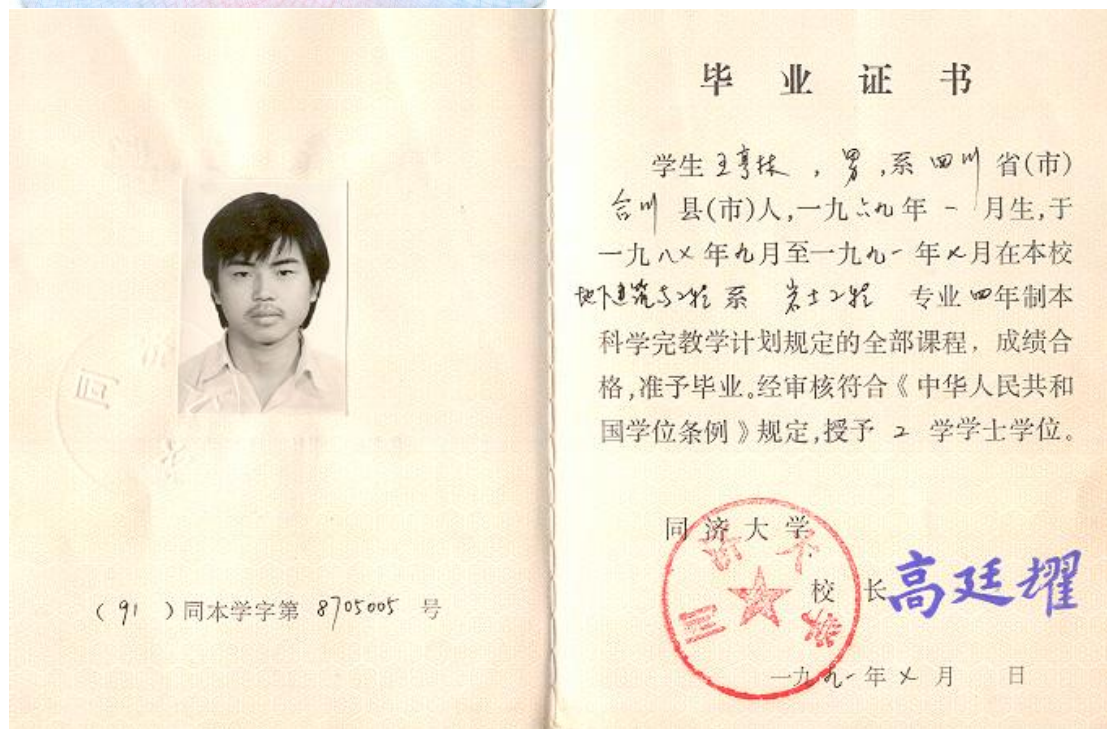 （91）同本学字第 8705005 号
毕业证书
学生王亨林，男，系四川省(市)
合川县(市)人，一九六九年一月生，于
一九八乂年九月至一九九一年乂月在本校
地下建筑与工程系 岩土工程 专业四年制本
科学完教学计划规定的全部课程，成绩合
格，准予毕业。经审核符合《中华人民共和
国学位条例》规定，授予 工 学学士学位。
同济大学
校长 高廷耀
一九九一年乂月 日
同济大学